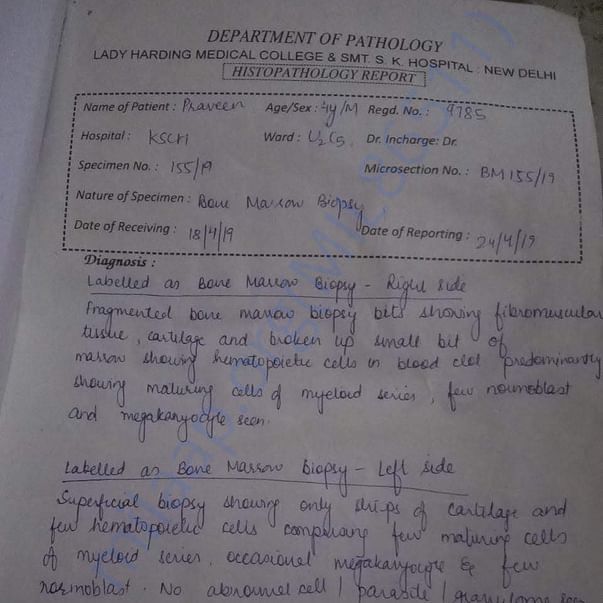 DEPARTMENT OF PATHOLOGY
LADY HARDING MEDICAL COLLEGE & SMT. S. K. HOSPITAL : NEW DELHI
HISTOPATHOLOGY REPORT
Name of Patient : Praveen Age/Sex : 4y/M Regd. No. : 9785
Hospital : KSCH Ward : U2C5 Dr. Incharge: Dr.
Specimen No. : 155/19 Microsection No. : BM 155/19
Nature of Specimen : Bone Marrow Biopsy
Date of Receiving : 18/4/19 Date of Reporting : 24/4/19
Diagnosis :
Labelled as Bone Marrow Biopsy - Right side
Fragmented bone marrow biopsy bits showing fibromuscular
tissue, cartilage and broken up small bit of
marrow showing hematopoietic cells in blood clot predominantly
showing maturing cells of myeloid series, few normoblast
and megakaryocyte seen.
Labelled as Bone Marrow Biopsy - Left side
Superficial biopsy showing only strips of cartilage and
few hematopoietic cells comprising few maturing cells
of myeloid series, occasional megakaryocyte & few
normoblast. No abnormal cell / parasite / granuloma seen